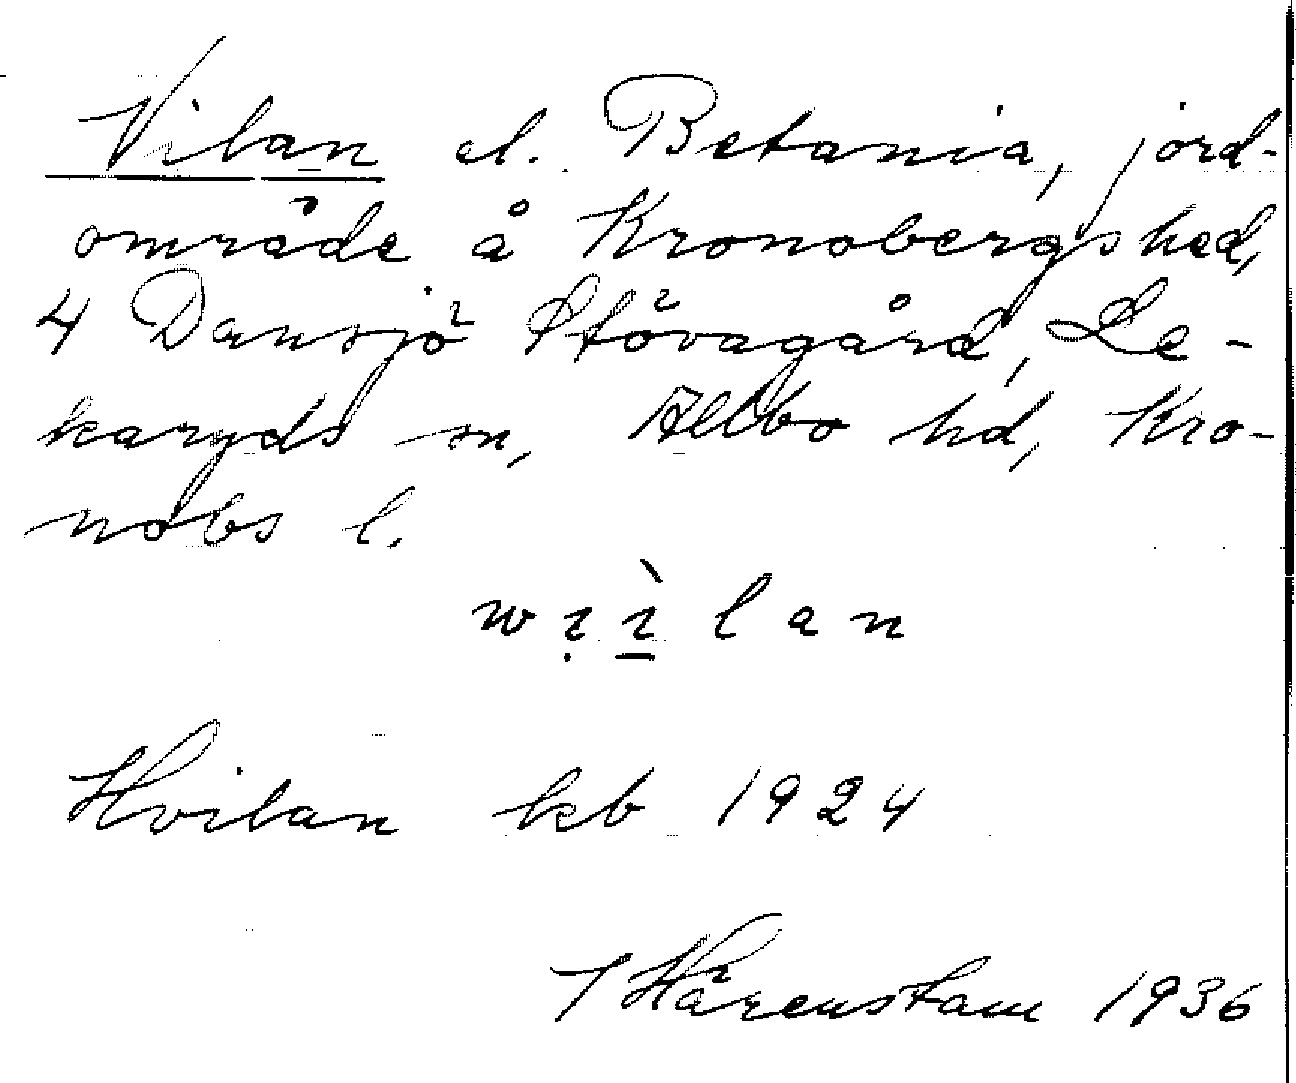 Vilan el. Betania, jord-
område å Kronobergshed,
4 Dansjö Stövagård, Le-
karyds sn, Allbo hd, Kro-
nobs l.
wịı̱̀lan
Hvilan kb 1924
T Hårenstam 1936